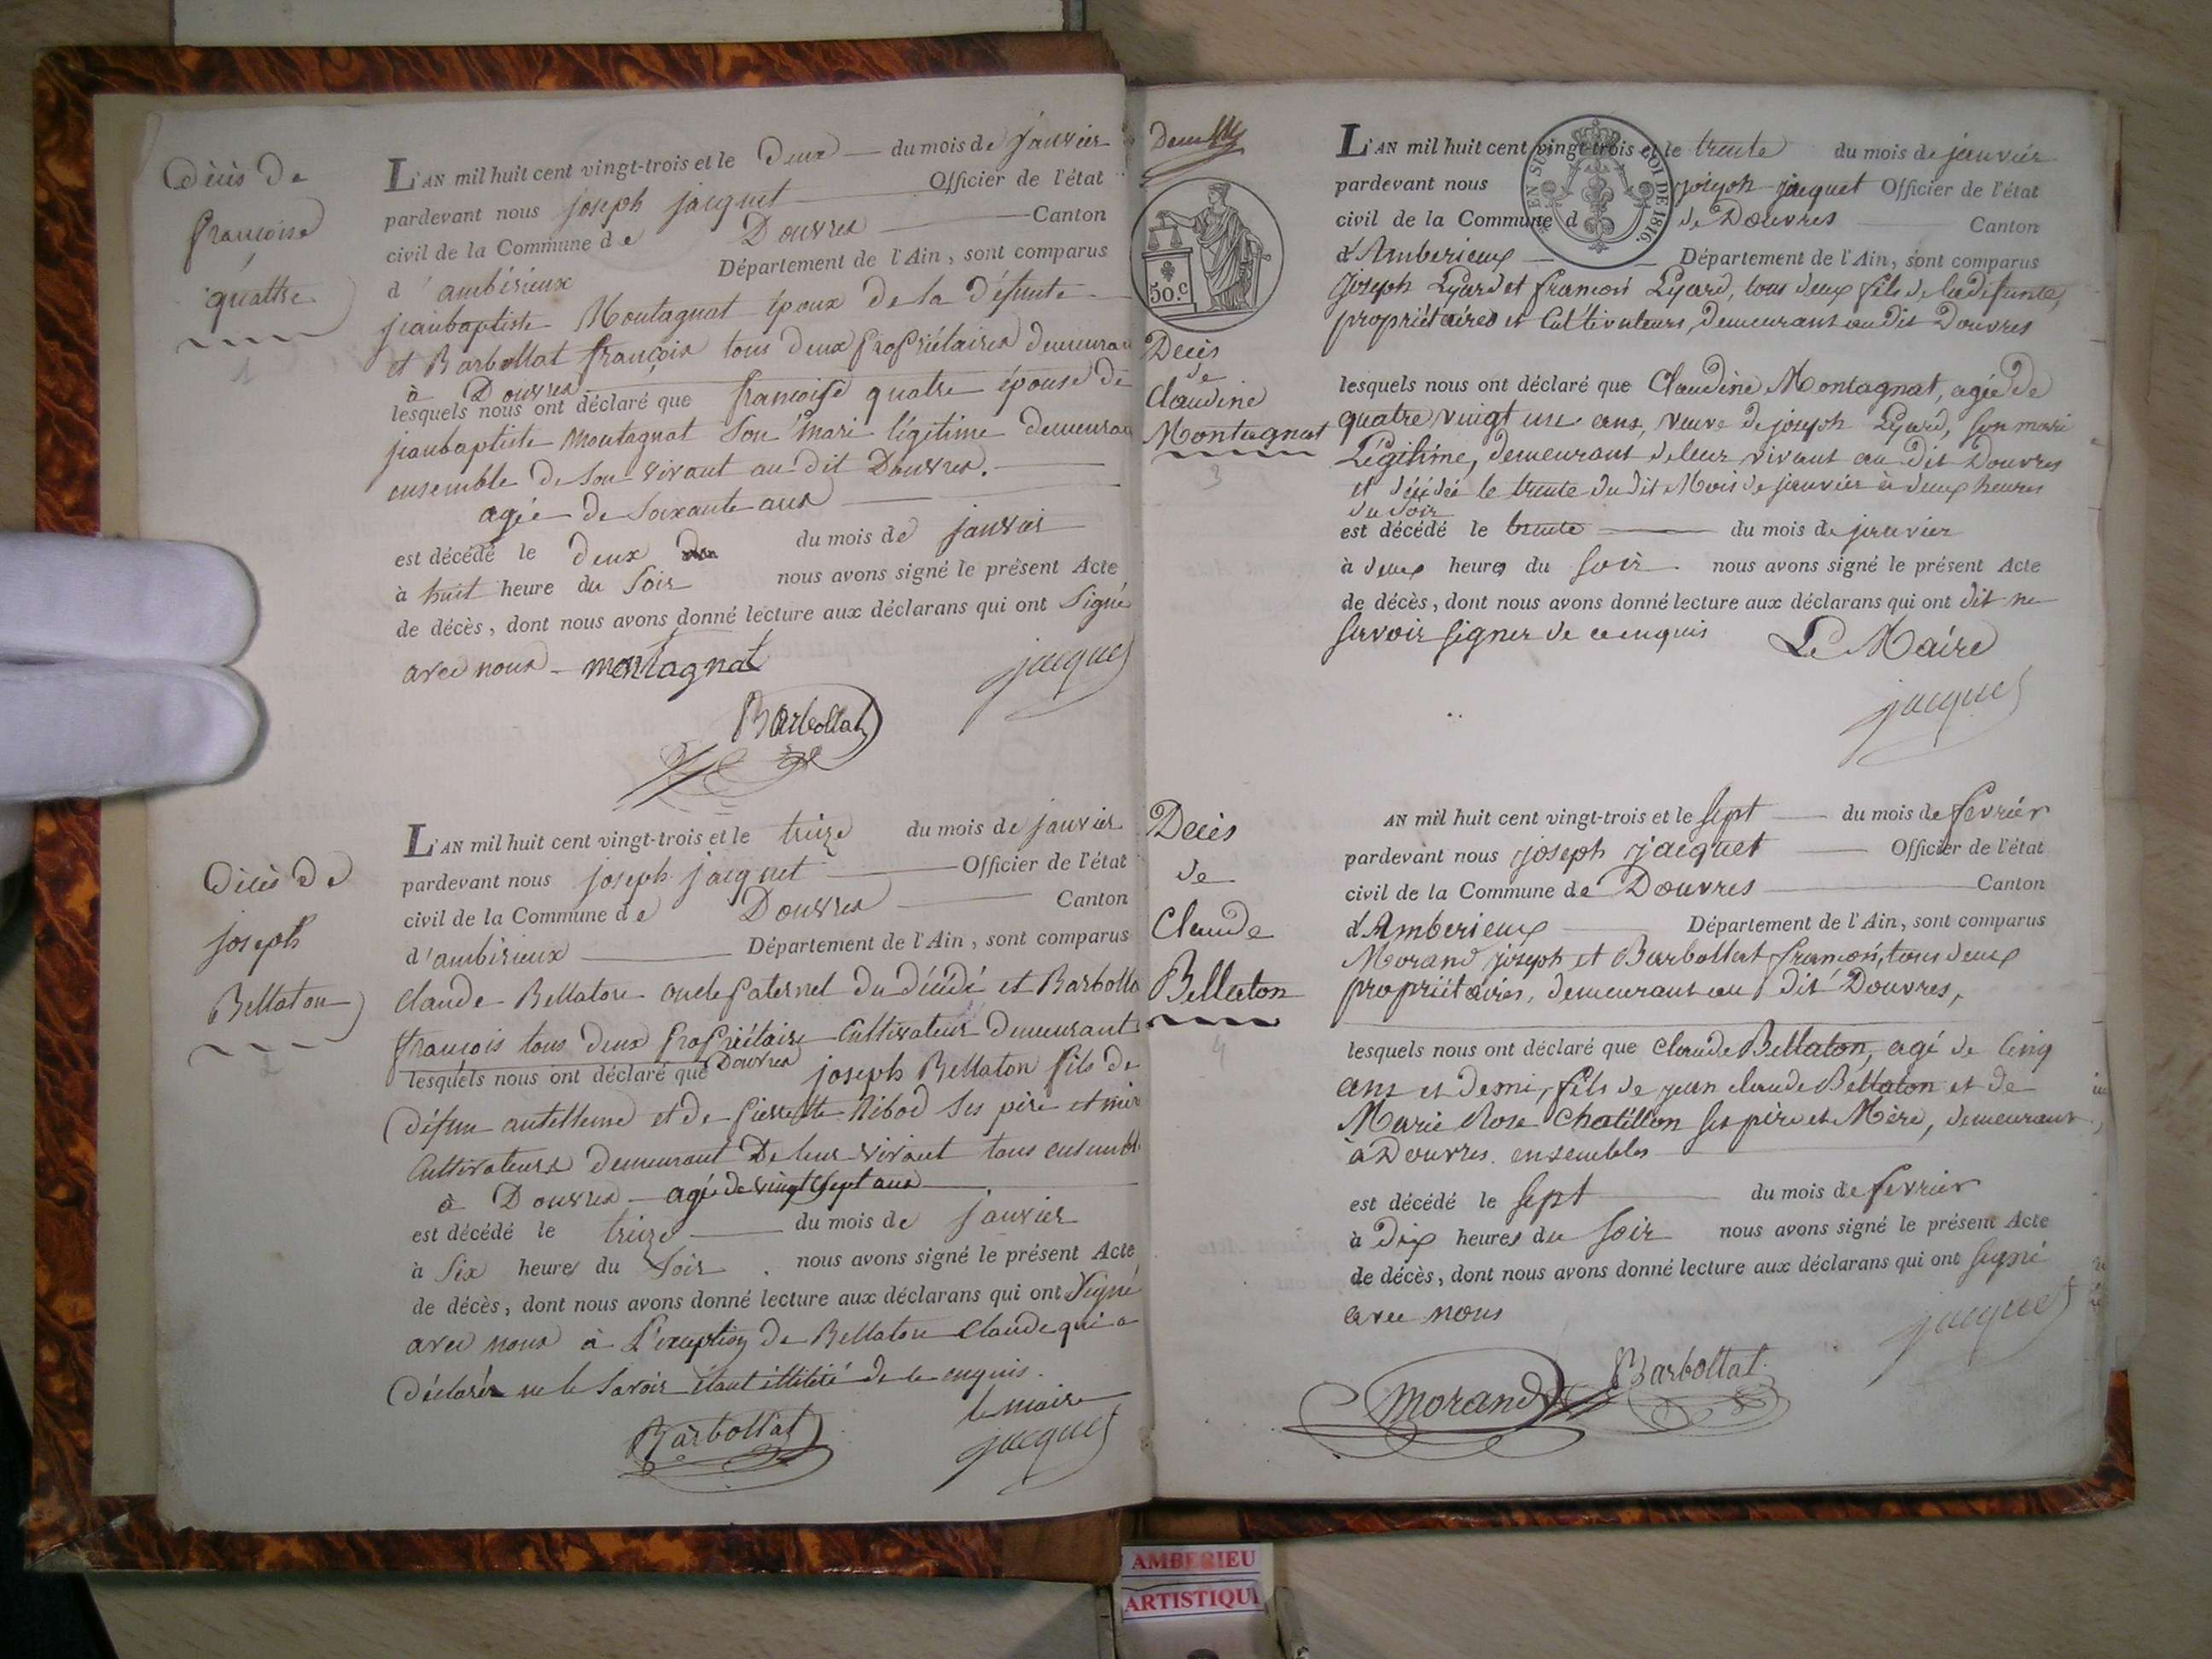 Décès de
françoise
quattre
1
L'AN mil huit cent vingt-trois et le Deux du mois de janvier
pardevant nous joseph jacquet Officier de l'état
civil de la Commune de Douvres Canton
d'ambérieux Département de l'Ain, sont comparus
jeanbaptiste Montagnat époux de la défunte
et Barbollat françois tous deux propriétaires demeuran
à Douvres
lesquels nous ont déclaré que françoise quatre épouse de
jeanbaptiste Montagnat son mari légitime demeuran
ensemble de son vivant au dit Douvres.
agée de soixante ans
est décédé le deux du mois de janvier
à huit heure du soir nous avons signé le présent Acte
de décès, dont nous avons donné lecture aux déclarans qui ont signé
avec nous montagnat jacquet
Barbollat
Décès de
joseph
Bellaton
2
L'AN mil huit cent vingt-trois et le treize du mois de janvier
pardevant nous joseph jacquet Officier de l'état
civil de la Commune de Douvres Canton
d'ambérieux Département de l'Ain, sont comparus
Claude Bellaton oncle paternel du décédé et Barbolla
françois tous deux propriétaire Cultivateur demeurant
lesquels nous ont déclaré que Douvres joseph Bellaton fils de
défun antelleme et de pierrette Ribod ses père et mèr
Cultivateurs demeurant De leur vivant tous ensembl
à Douvres agée de vingt sept ans
est décédé le treize du mois de janvier
à six heures du soir nous avons signé le présent Acte
de décès, dont nous avons donné lecture aux déclarans qui ont signé
avec nous à L'exception de Bellaton Claude qui a
déclarér ne le savoir étant illitéré de ce enquis.
le maire
Barbollat jacquet
Deux
EN SUS LOI DE 1816.
50.c
Decès
de
Claudine
Montagnat
3
L'AN mil huit cent vingt-trois et le trente du mois de janvier
pardevant nous joseph jacquet Officier de l'état
civil de la Commune d de Douvres Canton
d'Amberieux Département de l'Ain, sont comparus
Joseph Lyard et francois Lyard, tous deux fils de la défunte,
propriétaires et Cultivateurs, demeurans au dit Douvres
lesquels nous ont déclaré que Claudine Montagnat, agée de
quatre vingt une ans, veuve de joseph Lyard, son mari
Légitime, demeurans de leur vivant au dit Douvres
et décédée le trente du dit Mois de janvier à deux heures
du soir
est décédé le trente du mois de janvier
à deux heures du soir nous avons signé le présent Acte
de décès, dont nous avons donné lecture aux déclarans qui ont dit ne
savoir signer de ce enquis Le Maire
jacquet
Decès
de
Claude
Bellaton
4
AN mil huit cent vingt-trois et le sept du mois de fevriér
pardevant nous joseph jacquet Officier de l'état
civil de la Commune de Douvres Canton
d'Amberieux Département de l'Ain, sont comparus
Morand joseph et Barbollat francois, tous deux
propriétaires, demeurant au dit Douvres,
lesquels nous ont déclaré que Claude Bellaton, agé de Cinq
ans et demi, fils de jean claude Bellaton et de
Marie Rose Chatillon ses père et Mère, demeurant
à Douvres. ensembles
est décédé le sept du mois de fevrier
à dix heures du soir nous avons signé le présent Acte
de décès, dont nous avons donné lecture aux déclarans qui ont signé
avec nous jacquet
Morand Barbollat
AMBERIEU
ARTISTIQU